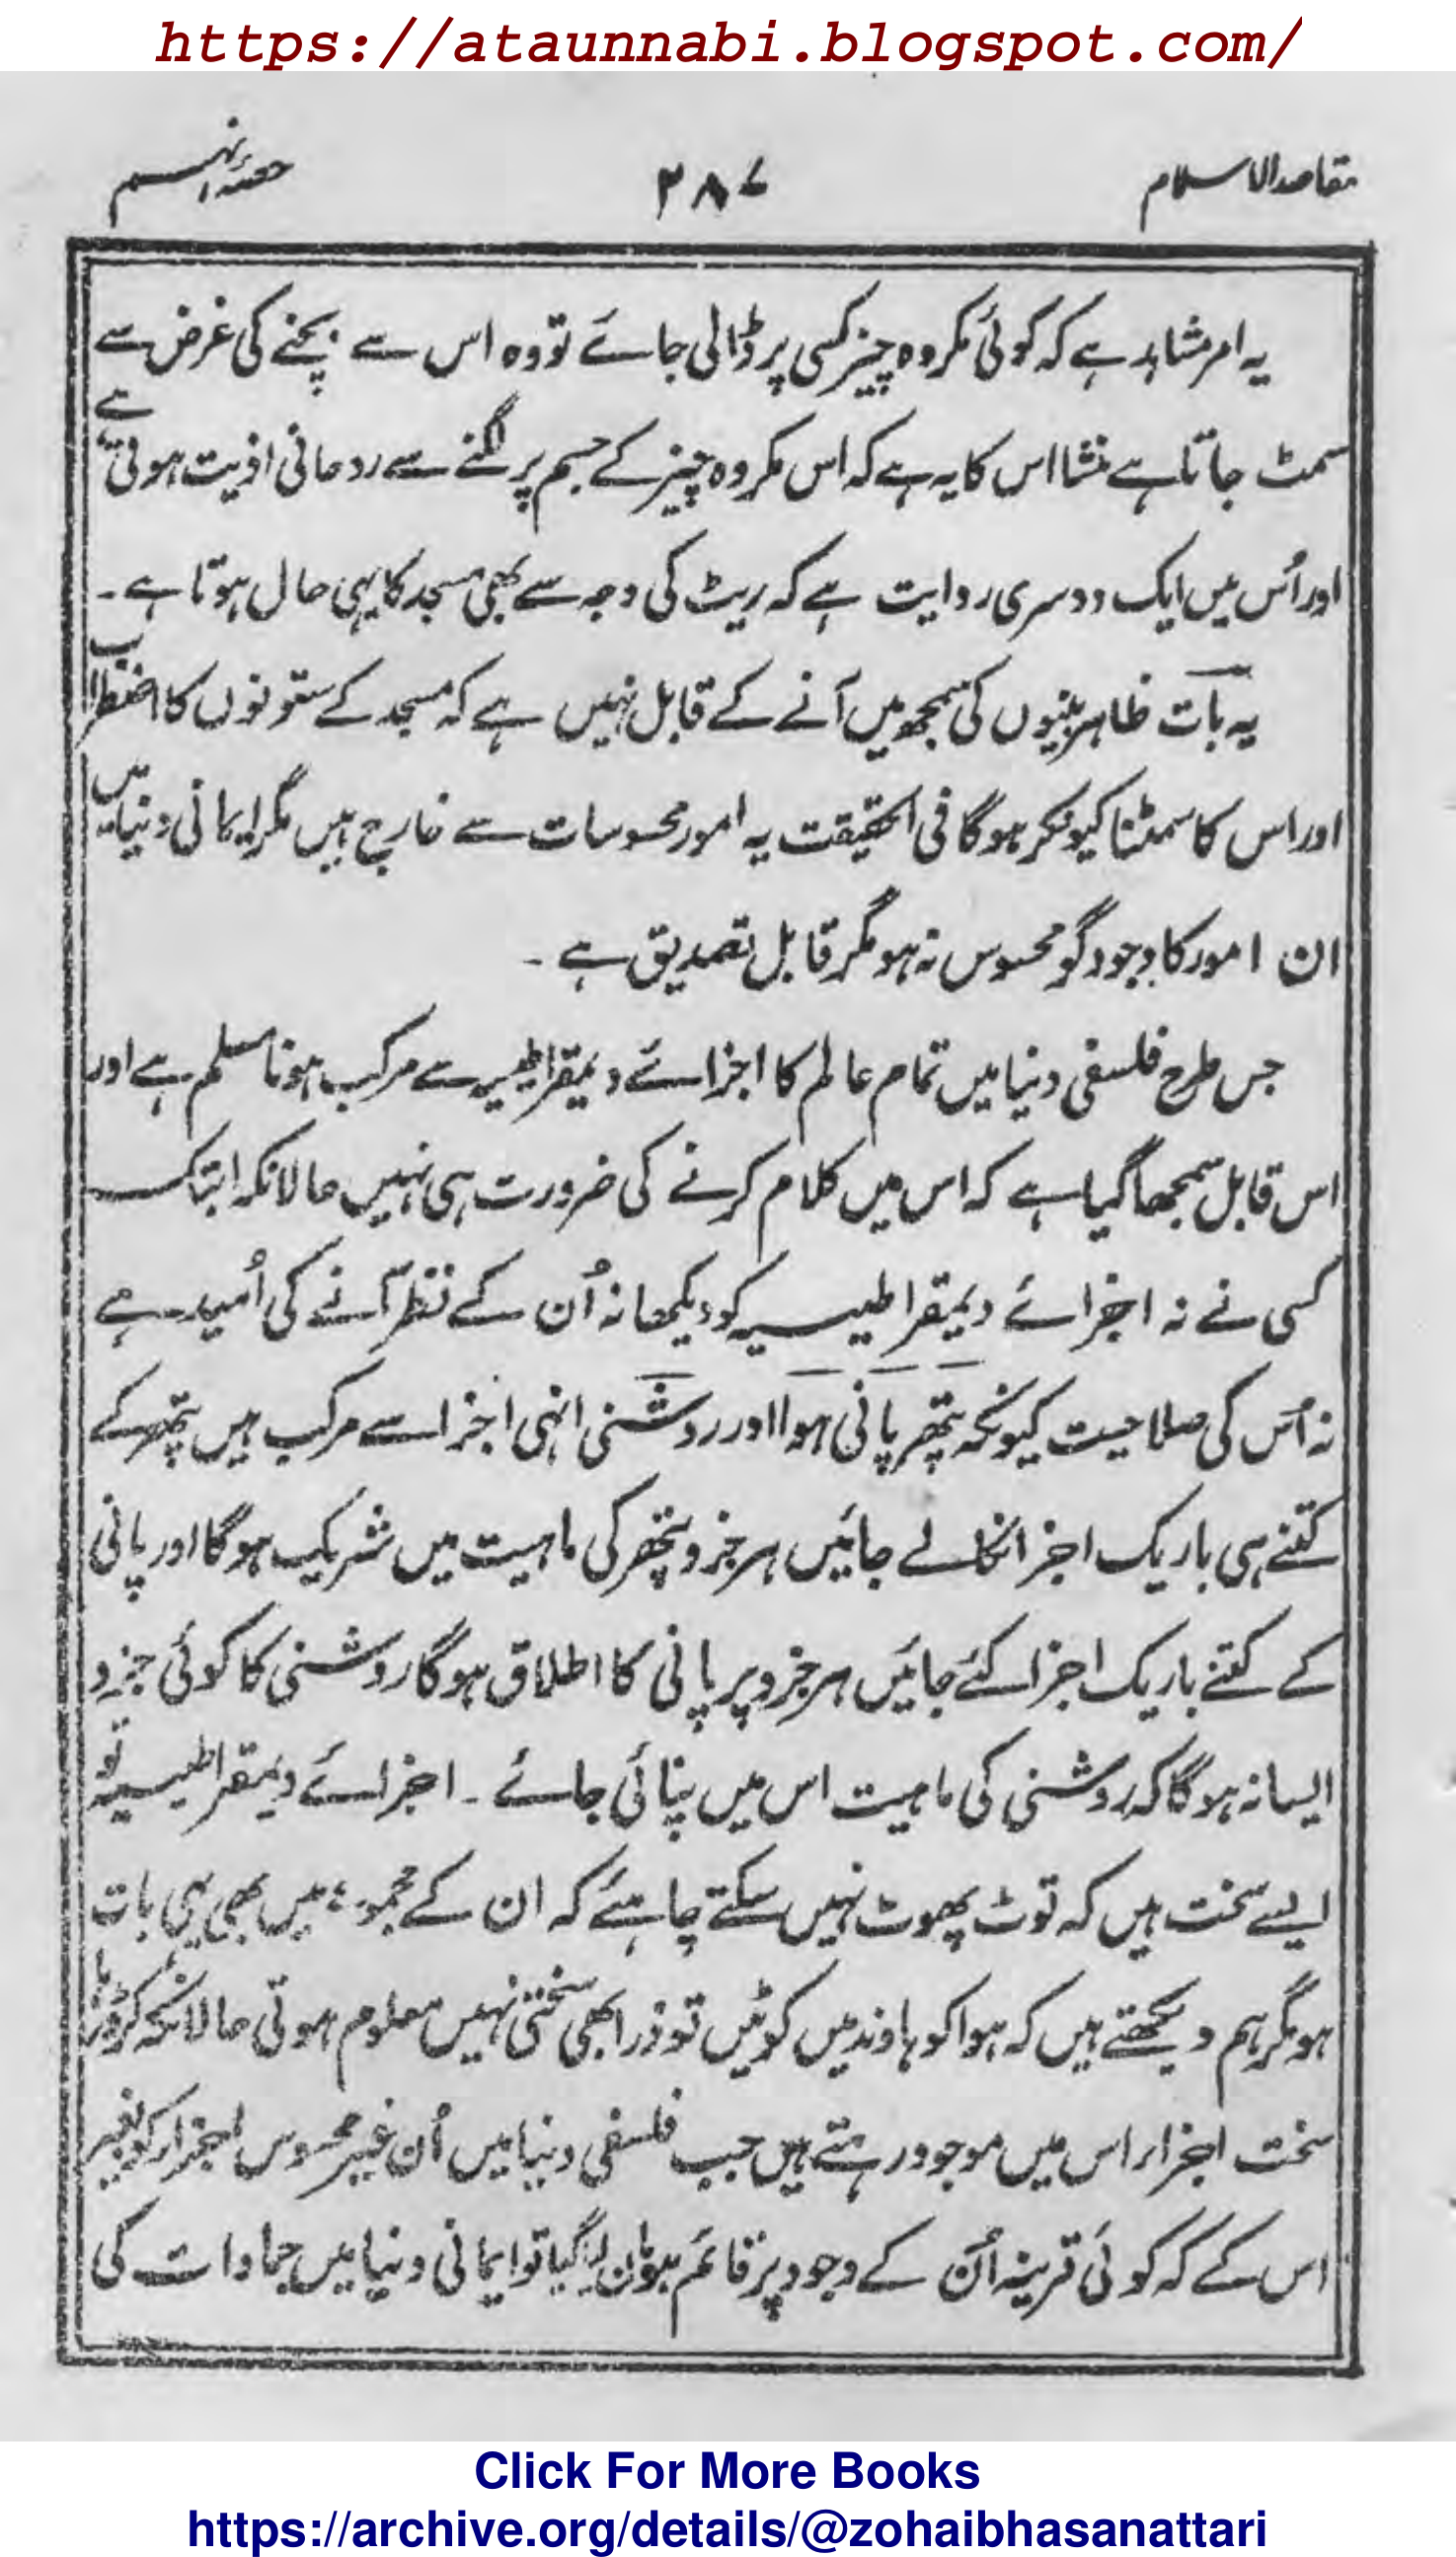 https://ataunnabi.blogspot.com/
مقاصد الاسلام ۲۸۷ حصۂ نہم
یہ امر مشاہد ہے کہ کوئی مکروہ چیز کسی پر ڈالی جائے تو وہ اس سے بچنے کی غرض سے
سمٹ جاتا ہے منشا اس کا یہ ہے کہ اس مکروہ چیز کے جسم پر لگنے سے روحانی اذیت ہوتی ہے
اور اُس میں ایک دوسری روایت ہے کہ ریٹ کی وجہ سے بھی مسجد کا یہی حال ہوتا ہے۔
یہ بات ظاہر بینیوں کی سمجھ میں آنے کے قابل نہیں ہے کہ مسجد کے ستونوں کا اضطراب
اور اس کا سمٹنا کیونکر ہوگا فی الحقیقت یہ امور محسوسات سے خارج ہیں مگر ایمانی دنیا میں
ان امور کا وجود گو محسوس نہ ہو مگر قابل تصدیق ہے۔
جس طرح فلسفی دنیا میں تمام عالم کا اجزائے دیمقراطیسیہ سے مرکب ہونا مسلم ہے اور
اس قابل سمجھا گیا ہے کہ اس میں کلام کرنے کی ضرورت ہی نہیں حالانکہ ابتک
کسی نے نہ اجزائے دیمقراطیسیہ کو دیکھا نہ اُن کے نظر آنے کی اُمید ہے
نہ اُس کی صلاحیت کیونکہ پتھر پانی ہوا اور روشنی انہی اجزا سے مرکب ہیں پتھر کے
کتنے ہی باریک اجزا نکالے جائیں ہر جزو پتھر کی ماہیت میں شریک ہوگا اور پانی
کے کتنے باریک اجزا کئے جائیں ہر جزو پر پانی کا اطلاق ہوگا روشنی کا کوئی جزو
ایسا نہ ہوگا کہ روشنی کی ماہیت اس میں پنائی جائے۔ اجزائے دیمقراطیسیہ تو
ایسے سخت ہیں کہ توٹ پھوٹ نہیں سکتے چاہئے کہ ان کے مجموعہ میں بھی یہی بات
ہو مگر ہم دیکھتے ہیں کہ ہوا کو ہاوند میں کوٹیں تو ذرا بھی سختی نہیں معلوم ہوتی حالانکہ کڑوڑہا
سخت اجزاء اس میں موجود رہتے ہیں جب فلسفی دنیا میں اُن غیر محسوس اجزاء کو بغیر
اس کے کہ کوئی قرینہ اُن کے وجود پر قائم ہو مان لیا گیا تو ایمانی دنیا میں جمادات کی
Click For More Books
https://archive.org/details/@zohaibhasanattari